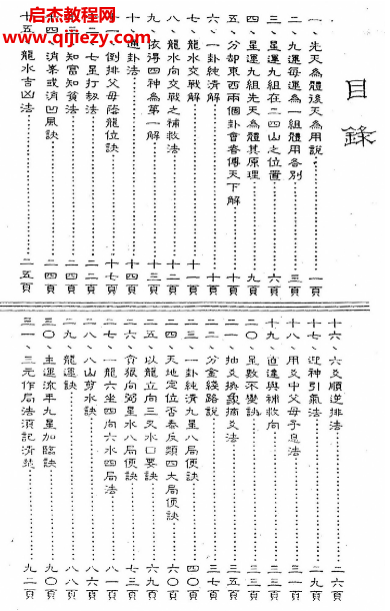 启杰教课网
www.qijiezy.com
目錄
一、先天為體後天為用說……一頁
二、九運每運為一組體用各別……三頁
三、星運九組在二四山之位置……六頁
四、星運九組先天為體其原理……九頁
五、分卻東西兩個卦會者傳天下解……十頁
六、一卦純清解……十頁
七、龍水交戰解……十一頁
八、龍水向交戰之補救法……十二頁
九、依得四神為第一解……十三頁
十、通卦法……十四頁
十一、倒排父母蔭龍位訣……十七頁
十二、七星打劫法……二二頁
十三、知富知貧法……二四頁
十四、消峯或消凹風訣……二四頁
十五、龍水吉凶法……二五頁
十六、六爻順逆排法……二六頁
十七、迎神引氣法……二九頁
十八、用爻中父母子息法……三一頁
十九、直達與補救向……三三頁
二〇、星數不變訣……三三頁
二一、抽爻換象摘爻法……三五頁
二二、分金綫路說……三七頁
二三、一卦純清九星八局便訣……四〇頁
二四、天地定位否泰反類四大局便訣……六〇頁
二五、以龍立向三叉水口要訣……六九頁
二六、貪狼向弼星水八局便訣……七三頁
二七、一龍六坐四向六水四局法……八一頁
二八、八山剪水訣……八六頁
二九、龍運訣……八八頁
三〇、主運流年九星加臨訣……九〇頁
三一、三元作局法須記清楚……九二頁